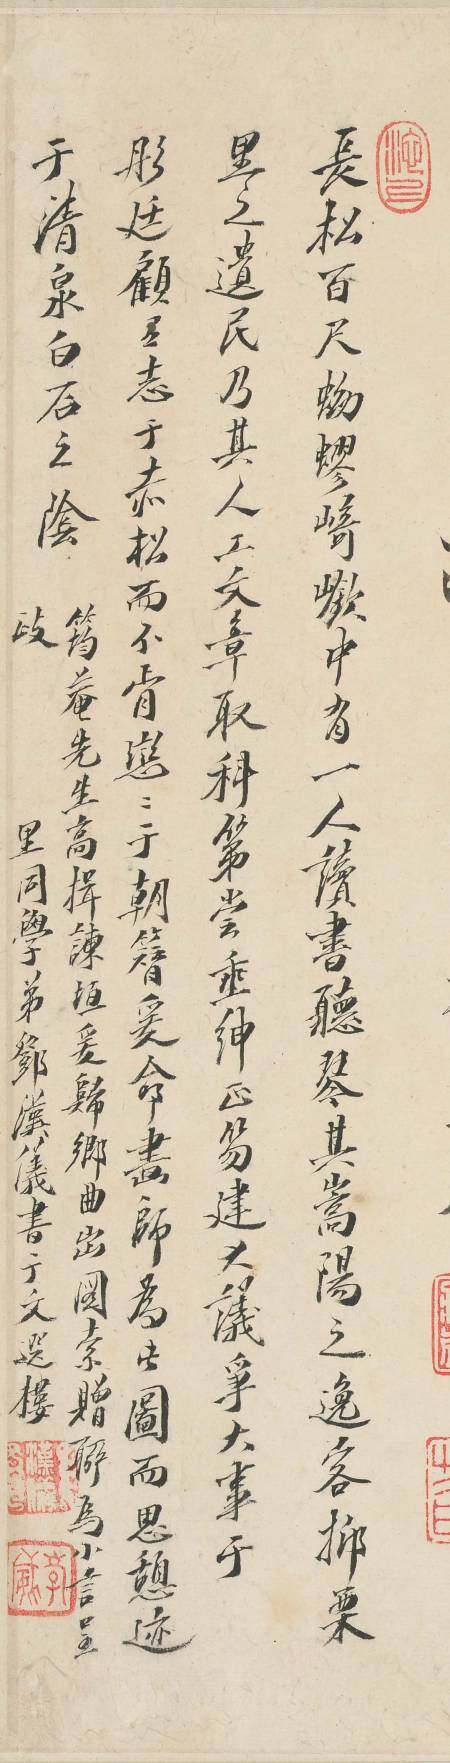 長松百尺蚴蟉崎嶔中有一人讀書聽琴其嵩陽之逸客抑栗
里之遺民乃其人工文章取科第嘗垂紳正笏建大議爭大事于
彤廷顧有志于赤松而不肯戀〻于朝簪爰命畫師為此圖而思憩迹
于清泉白石之陰
筠菴先生高揖諫垣爰歸鄉曲出圖索贈聊為小言呈
政
里同學弟鄧漢儀書于文選樓